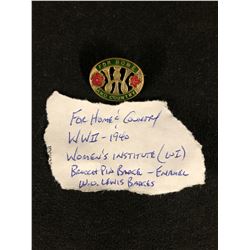 FOR HOME
W I
AND COUNTRY
FOR HOME & COUNTRY
WWII - 1940
WOMEN'S INSTITUTE (WI)
BROOCH PIN BADGE - ENAMEL
W.O. LEWIS BADGES